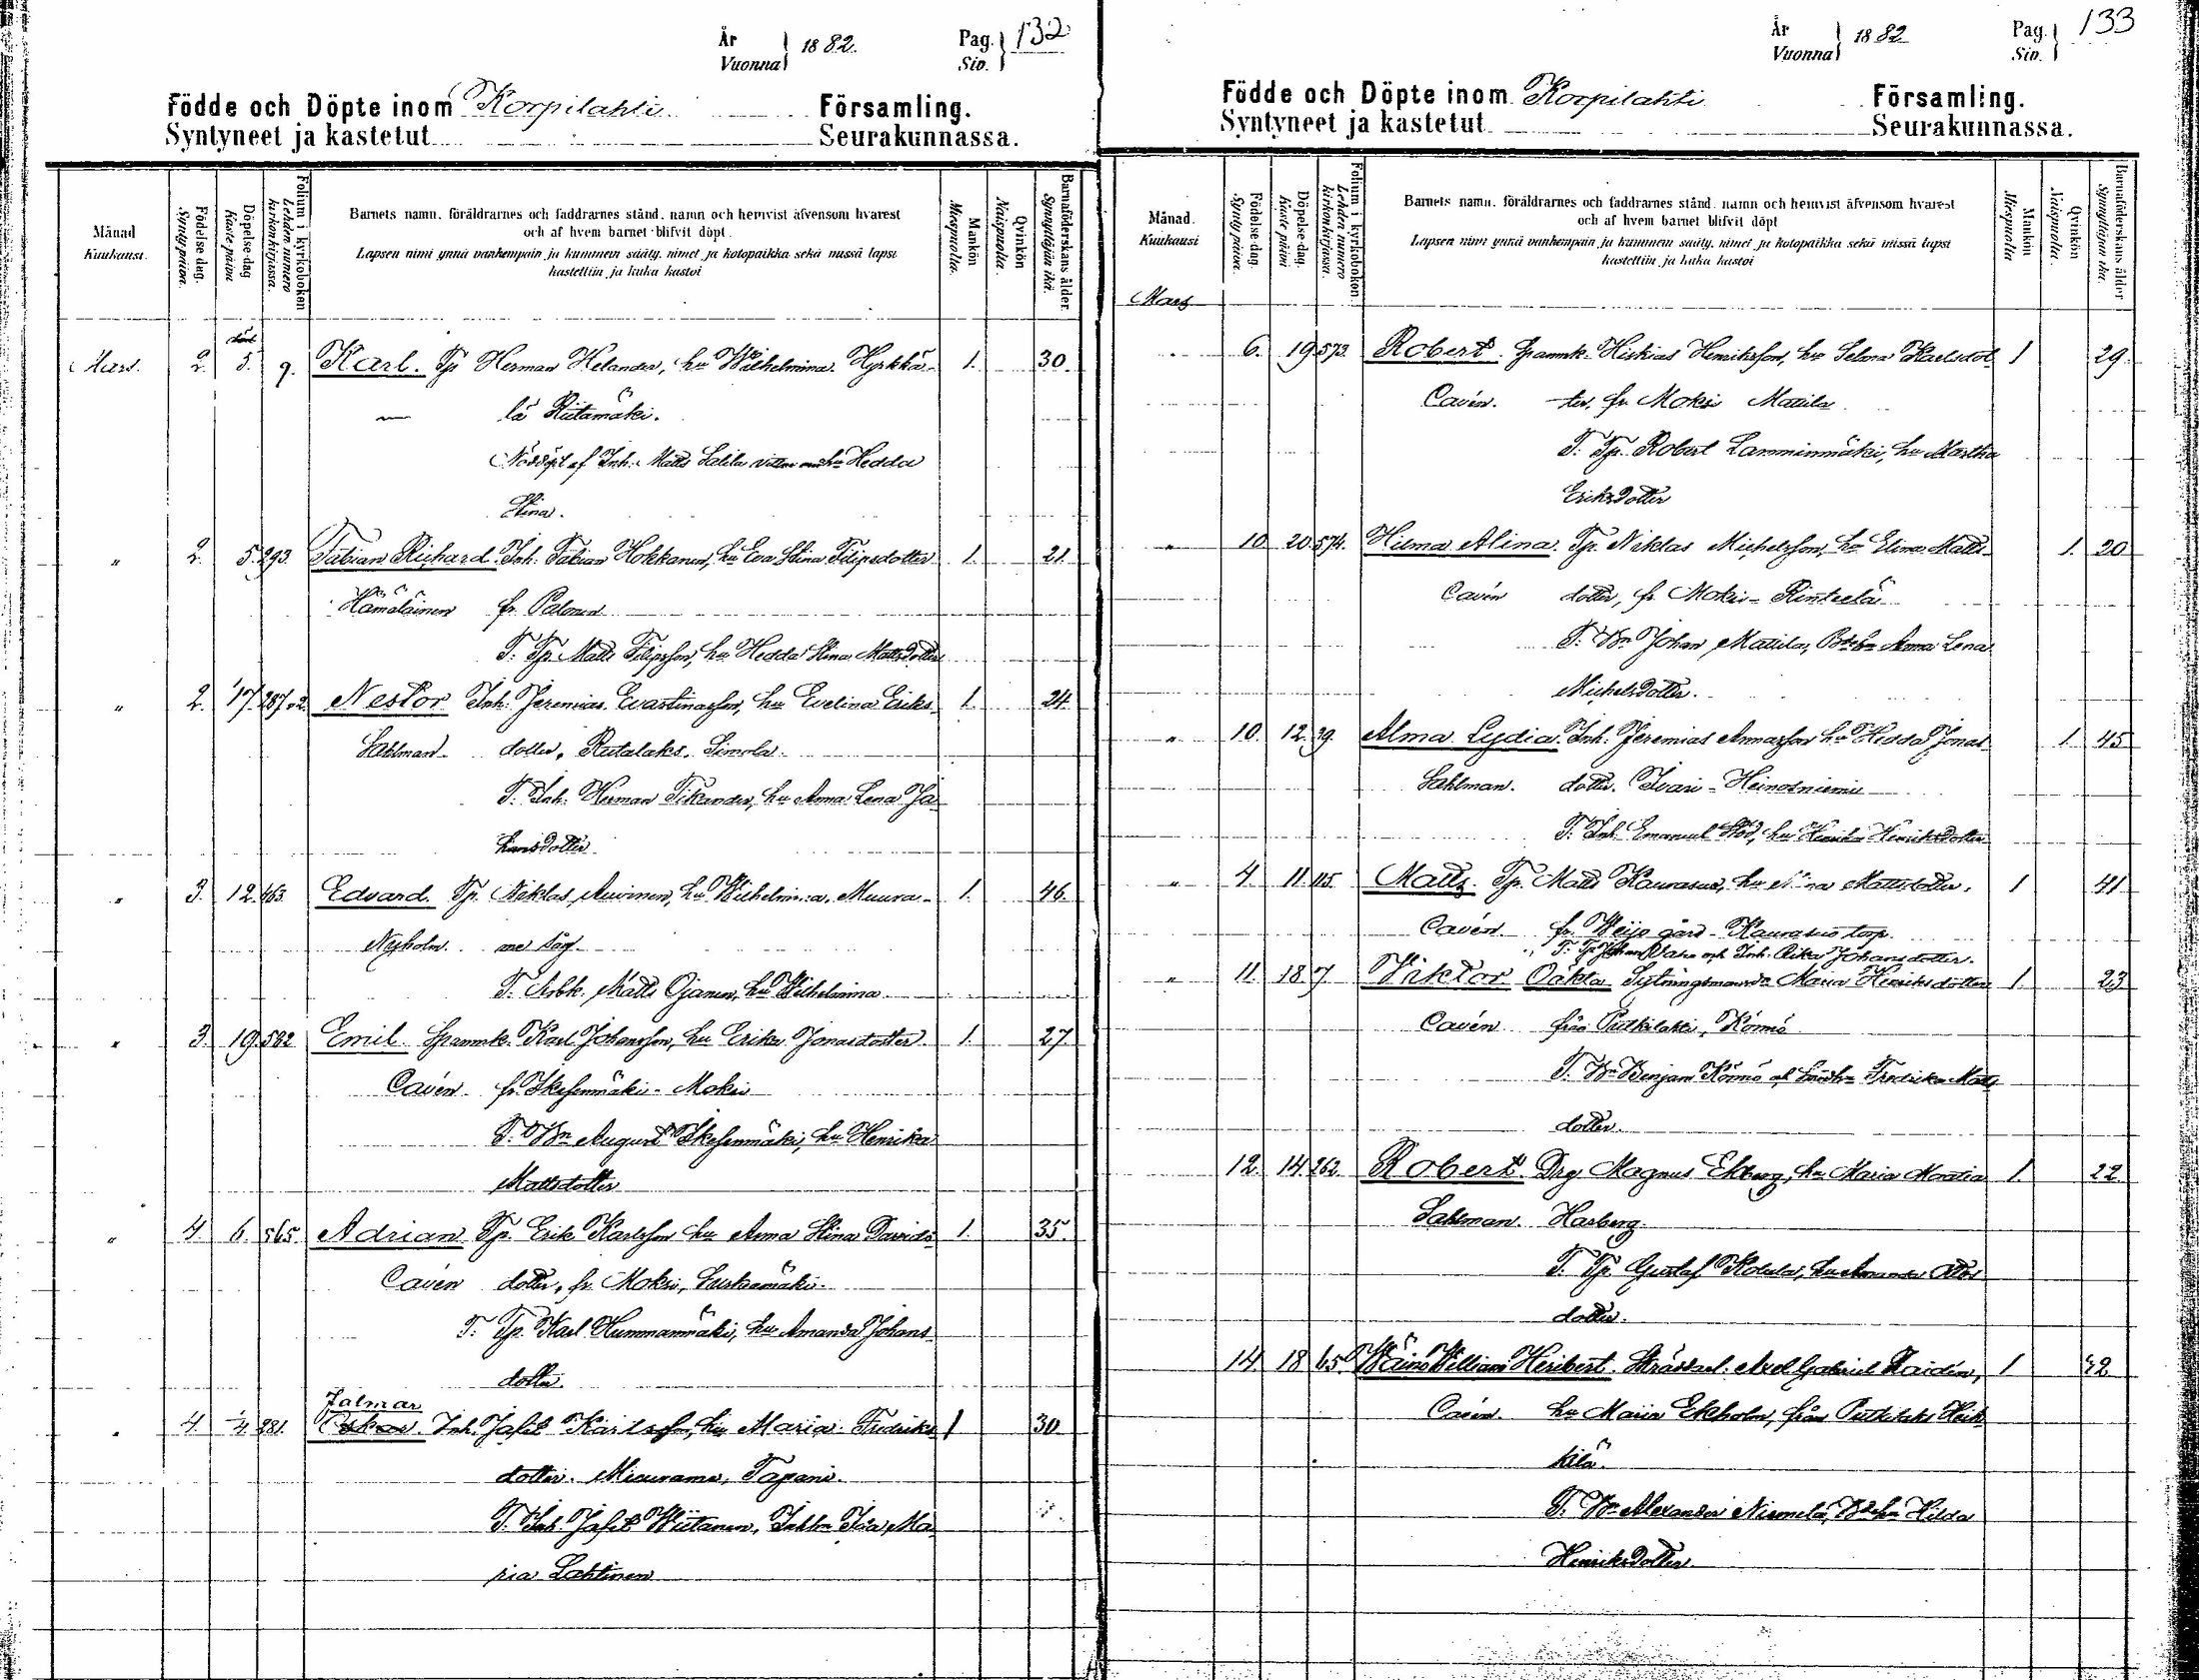 År
Vuonna } 1882.
Pag.
Siv. } 132
Födde och Döpte inom Korpilahti Församling.
Syntyneet ja kastetut Seurakunnassa.
Månad
Kuukausi.
Födelse-dag.
Syntypäivä.
Döpelse-dag
Kaste päivä
Folium i kyrkoboken
Lehden numero
kirkonkirjassa.
Barnets namn, föräldrarnes och faddrarnes stånd, namn och hemvist äfvensom hvarest
och af hvem barnet blifvit döpt.
Lapsen nimi ynnä vanhempain ja kummein sääty, nimet ja kotopaikka sekä missä lapsi
kastettiin ja kuka kastoi
Mankön
Miespuolia.
Qvinkön
Naispuolia.
Barnaföderskans ålder.
Synnyttäjän ikä.
Mars. 2. 5. 9. Karl. Tp. Herman Helander, hu Wilhelmina Hyrkkä- 1. 30.
lä Riitamäki.
Nöddöpt af Inh. Matts Salila Hedda
Stina.
" 2. 5. 293. Fabian Richard. Inh. Fabian Hokkanen, hu Eva Stina Filipsdotter 1. 21.
Hämäläinen fr. Palonen
T. Tp. Matts Filipsson, hu Hedda Stina Mattsdotter
" 2. 17. 287 Nestor Inh. Jeremias Evastinasson, hu Evelina Eriks- 1. 24.
Sahlman dotter, Rutalaks. Simola.
T. Inh. Herman Tikander, hu Anna Lena Jo-
hansdotter
" 3. 12. 463. Edvard. Tp. Niklas Auvinen, hu Wilhelmina, Muura- 1. 46.
Nyholm. me såg.
T. Arbk. Matts Ojanen, hu Wilhelmina
" 3. 19. 582 Emil Spannmk. Karl Johansson, hu Erika Jonasdotter. 1. 27
Cavén fr. Ikesenmäki - Moksi
T. Bn August Ikesenmäki, hu Henrika
Mattsdotter
" 4. 6. 565. Adrian Tp. Erik Karlsson hu Anna Stina Davids- 1. 35.
Cavén dotter, fr. Moksi,
T. Tp. Karl Hummanmäki, hu Amanda Johans-
dotter.
Jalmar
" 4. 281. Oskar. Inh. Jafet Karlsson, hu Maria Fredriks- 1 30
dotter. Muurame, Tapani.
T. Inh. Jafet Wiitanen, Ma-
ria Lahtinen
År
Vuonna } 1882
Pag.
Siv. } 133
Födde och Döpte inom Korpilahti Församling.
Syntyneet ja kastetut Seurakunnassa.
Månad.
Kuukausi
Födelse-dag.
Synty päivä.
Döpelse-dag.
Kaste päivä
Folium i kyrkoboken
Lehden numero
kirkonkirjassa.
Barnets namn, föräldrarnes och faddrarnes stånd, namn och hemvist äfvensom hvarest
och af hvem barnet blifvit döpt
Lapsen nimi ynnä vanhempain ja kummein sääty, nimet ja kotopaikka sekä missä lapsi
kastettiin ja kuka kastoi
Mankön
Miespuolia
Qvinkön
Naispuolia.
Barnaföderskans ålder
Synnyttäjän ikä.
Mars
" 6. 19 573. Robert. Spannmk. Hiskias Henriksson, hu Selma Karlsdot- 1 29.
Cavén. ter, fr. Moksi Mattila
T. Tp. Robert Lamminmäki, hu Martha
Eriksdotter
" 10 20 574. Hilma Alina. Tp. Niklas Michelsson, hu Elina Matts- 1. 20
Cavén dotter, fr. Moksi - Rinteelä
T. Bn Johan Mattila, Anna Lena
Michelsdotter.
" 10. 12. 29. Alma Lydia. Inh. Jeremias Annasson hu Hedda Jonas- 1. 45
Sahlman. dotter. Isari - Heinosniemi
T. Inh. Emanuel hu Henriksdotter
" 4. 11. 115. Matts. Tp. Matts Kaurasuo, hu Mattsdotter. 1 41
Cavén fr. Weijo gård - Kaurasuo torp.
T. Tp. Johan och Inh. Rika Johansdotter.
" 11. 18 7 Viktor Sytningsman Maria Henriksdotter 1. 23
Cavén från Putkilahti, Kömö
T. Bn Benjam Kömö Fredrika Matts-
dotter.
12. 14. 262. Robert. Drg Magnus Ekberg, hu Maria 1. 22
Sahlman. Hasberg.
T. Tp. Gustaf hu Amanda
dotter.
14. 18 65. Wäinö William Heribert. Axel Gabriel 1 42
Cavén. hu Maria Ekholm, från Putkilaks Heik-
kilä.
T. Bn Alexander Niemelä, Hilda
Henriksdotter.